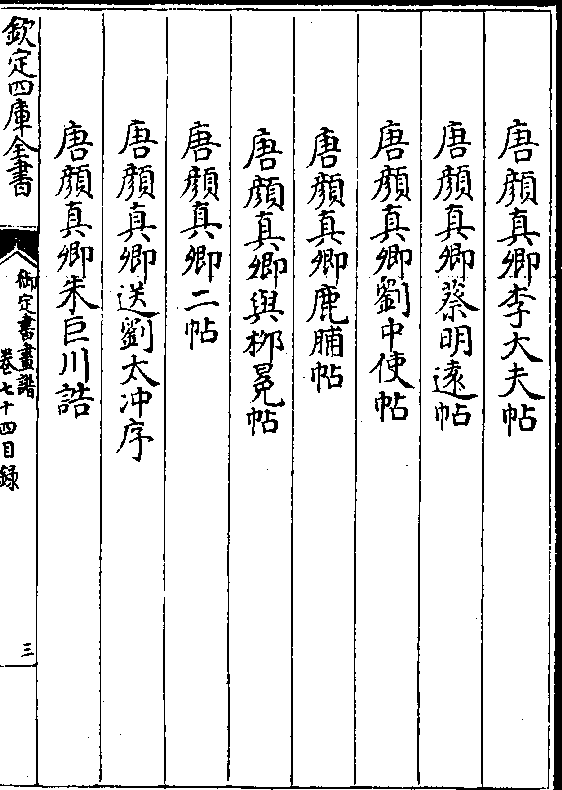 唐顔真卿李大夫帖
唐顔真卿蔡明遠帖
唐顔真卿劉中使帖
唐顔真卿鹿脯帖
唐顔真卿與栁冕帖
唐顔真卿二帖
唐顔真卿送劉太冲序
唐顔真卿朱巨川誥
欽定四庫全書
御定書畫譜
卷七十四目録
三